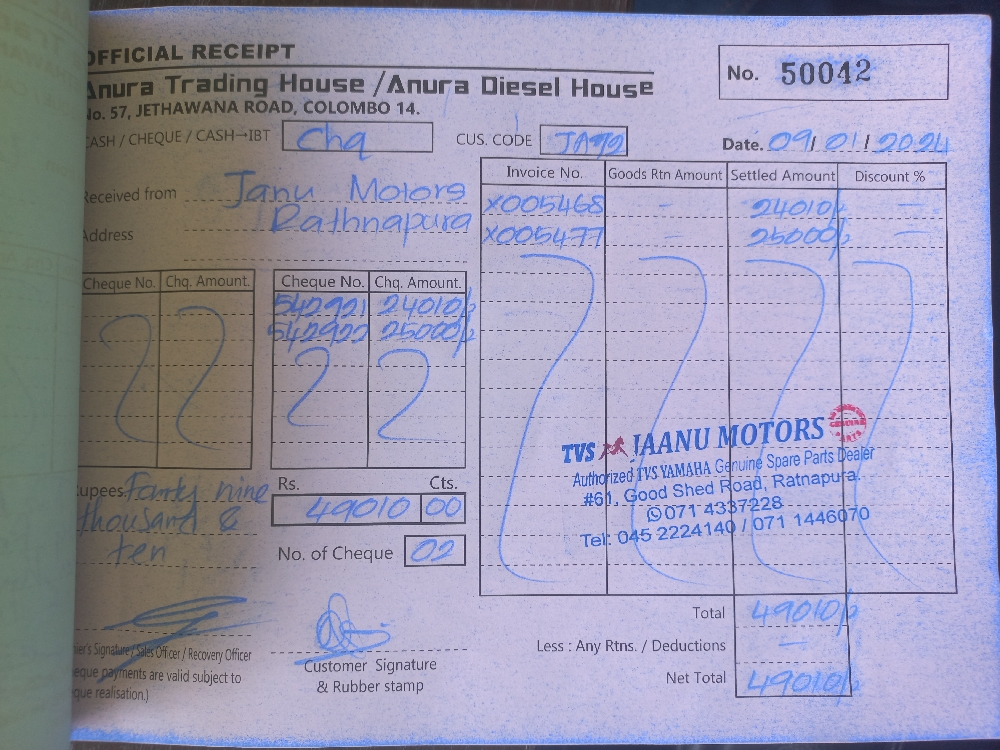 OFFICIAL RECEIPT
No. 50042
Anura Trading House /Anura Diesel House
No. 57, JETHAWANA ROAD, COLOMBO 14.
CASH / CHEQUE / CASH→IBT Chq CUS. CODE Date. 09/ 01/ 2024
Received from Janu Motors
Address Rathnapura
Invoice No. Goods Rtn Amount Settled Amount Discount %
X005468 - 24010/- -
X005477 - 25000/- -
Cheque No. Chq. Amount. Cheque No. Chq. Amount.
542921 24010/-
542922 25000/-
TVS JAANU MOTORS
Authorized TVS YAMAHA Genuine Spare Parts Dealer
#61, Good Shed Road, Ratnapura.
071 4337228
Tel: 045 2224140 / 071 1446070
Rupees Fourty nine
thousand &
ten
Rs. Cts.
49010 00
No. of Cheque 02
Total 49010/-
Less : Any Rtns. / Deductions -
Net Total 49010/-
ier's Signature / Sales Officer / Recovery Officer
eque payments are valid subject to
que realisation.)
Customer Signature
& Rubber stamp